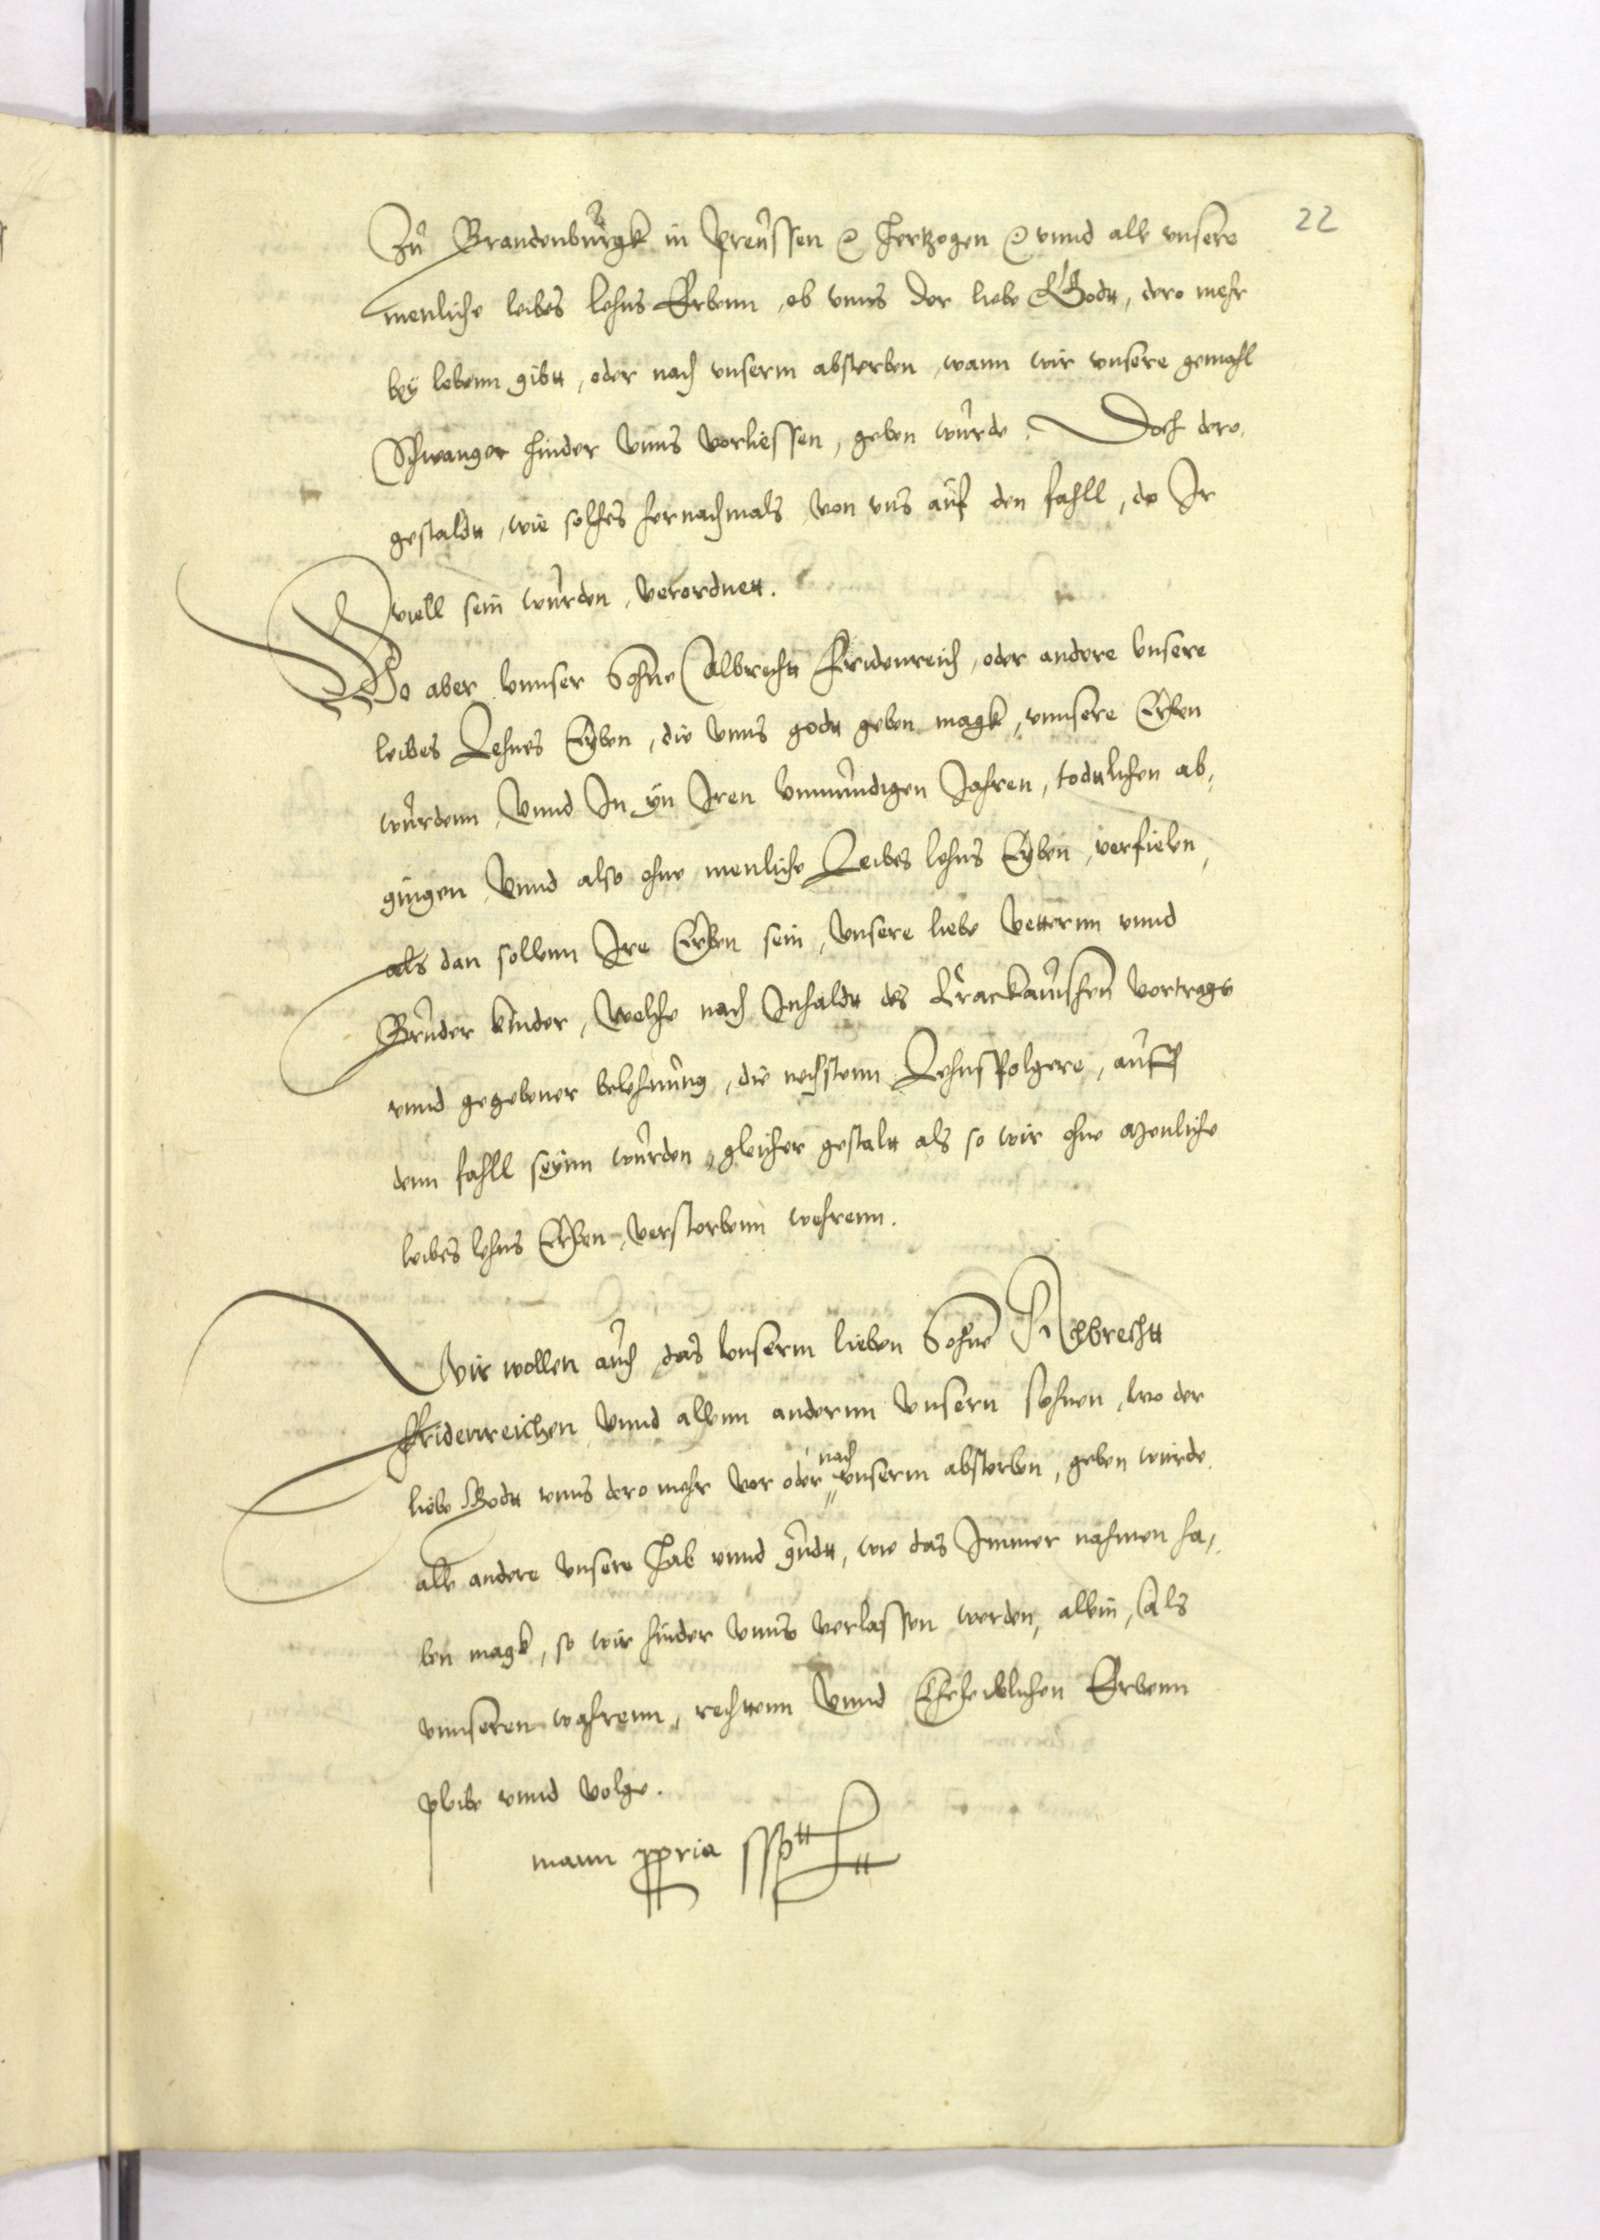 22
Zu Brandenburgk in Preussen etc. Hertzogen etc. vnnd alle vnsere
menliche leibes lehns Erbenn, ob vnns der liebe Godtt, dero mehr
bey lebenn gibtt, oder nach vnserm absterben, wann wir vnsere gemahl
Schwanger hinder vnns vorliessen, geben würde. Doch dero
gestaldtt, wie solches hernachmals von vns auf den fahll, do Ir
viell sein würden, verordnett.
Wo aber vnnser Sohne Albrechtt Fridenreich, oder andere vnsere
leibes Lehnes Erben, die vnns godtt geben magk, vnnsere Erben
würdenn, Vnnd In yn Iren vnmündigen Jahren, todttlichen ab,
gingen, Vnnd also ohne menliche Leibes lehns Erben, verfielen,
als dan sollenn Ire Erben sein, vnsere liebe Vetternn vnnd
Bruder kinder, welche nach Inhaldtt des Krackauischen vortrags
vnnd gegebener belehnung, die nechstenn Lehnsfolgere, auff
denn fahll seynn würden, gleicher gestaltt als so wir ohne menliche
leibes lehns Erben, verstorbenn wehrenn.
Wir wollen auch, das vnserm lieben Sohne Albrechtt
Fridenreichen, Vnnd allenn andernn vnsern söhnen, wo der
liebe Godtt vnns dero mehr vor oder nach vnserm absterben, geben würde
alle andere vnsere Hab vnnd gudtt, wie das Immer nahmen ha,
ben magk, so wir hinder vnns verlassen werden, allein, Als
vnnseren wahrenn, rechttenn Vnnd Eheleiblichen Erbenn
pleibe vnnd volge.
manu ppria sspt